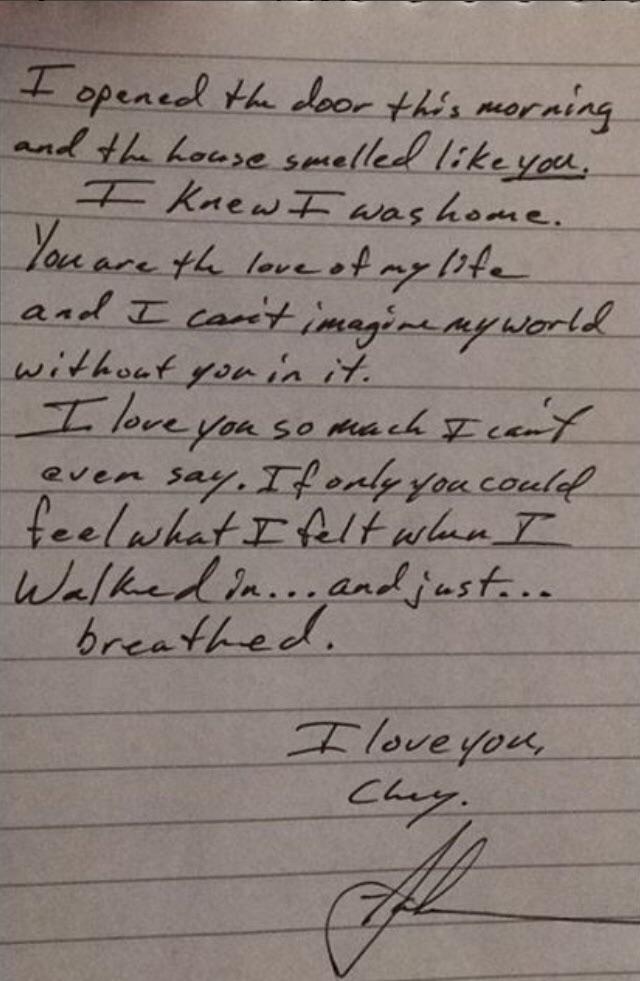 I opened the door this morning
and the house smelled like you.
I knew I was home.
You are the love of my life
and I can't imagine my world
without you in it.
I love you so much I can't
even say. If only you could
feel what I felt when I
walked in... and just...
breathed.
I love you,
Chey.